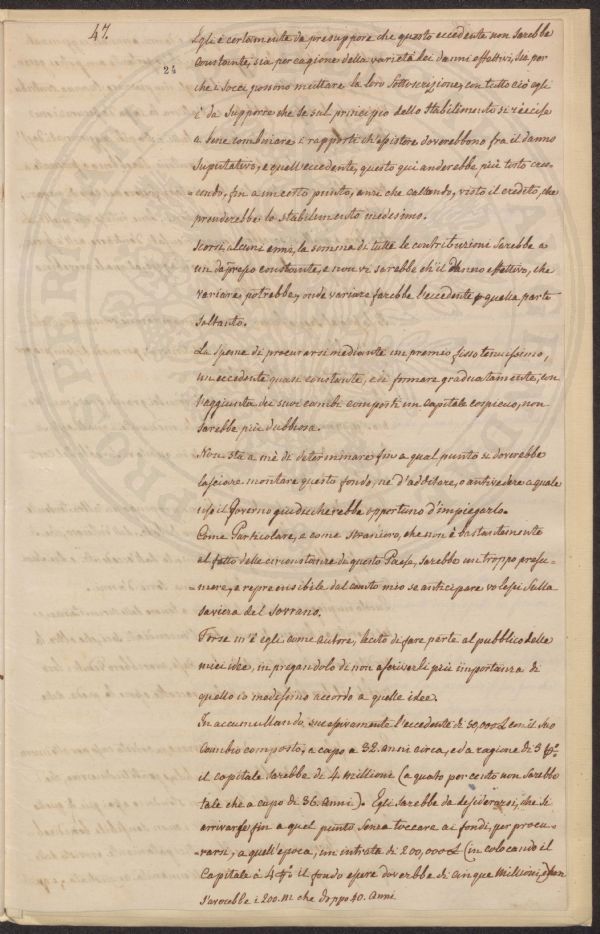 47.
24
Egli è certamente da presuppore che questo eccedente non sarebbe
constante, sia per cagione della varietà dei danni effettivi, sia per
che i socci possono mullare la loro sottoscrizione, con tutto ciò egli
è da supporre che se sul principio dello stabilimento si riescisse
a bene combinare i rapporti ch'esistere doverebbono fra il danno
suputativo, e quell'eccedente, questo qui anderebbe più tosto cres-
-cendo, fin a un certo punto, anzi che callando, visto il credito, che
prenderebbe lo stabilimento medesimo.
Scorsi alcuni anni, la somma di tutte le contribuzioni sarebbe a
un dapresso constante, e non vi sarebbe ch'il danno effettivo, che
variare potrebbe, onde variare farebbe l'eccedente p quella parte
soltanto.
La speme di procurarsi mediante un premeo fisso tenuissimo,
un eccedente quasi constante, e di formare gradualamente, con
l'aggiunta dei suoi cambi composti un capitale cospicuo, non
sarebbe più dubbiosa.
Non stà a mè di determinare fin a qual punto si doverebbe
lasciare montare questo fondo, ne d'additare, o antivedere a quale
uso il Governo giudicherebbe opportuno d'impiegarlo.
Come Particolare, e come straniero, che non è bastantemente
al fatto delle circonstanze di questo Paese, sarebbe un troppo presu-
-mere, e reprensibile dal canto mio se anticipare volessi sulla
saviezza del Sovrano.
Forse m'è egli, come autore, lecito di fare parte al pubblico delle
miei idee, in pregandolo di non ascriverli più importanza di
quello io medesimo accordo a quelle idee.
In accumullando successivamente l'eccedente di 50,000 £ con il suo
Cambio composto, a capo a 32. Anni circa, ed a ragione di 5 p%
il capitale sarebbe di 4 millioni (a quatro per cento non sarebbe
tale che a capo di 36. Anni). Egli sarebbe da desiderarsi, che si
arrivasse fin a quel punto senza toccare ai fondi, per procu-
-rarsi, a quell'epoca, un intrata di 200,000 £ (in colocando il
Capitale à 4 p% il fondo essere doverbbe di cinque Millioni, e non
s'averebbe i 200.m che doppo 40. Anni